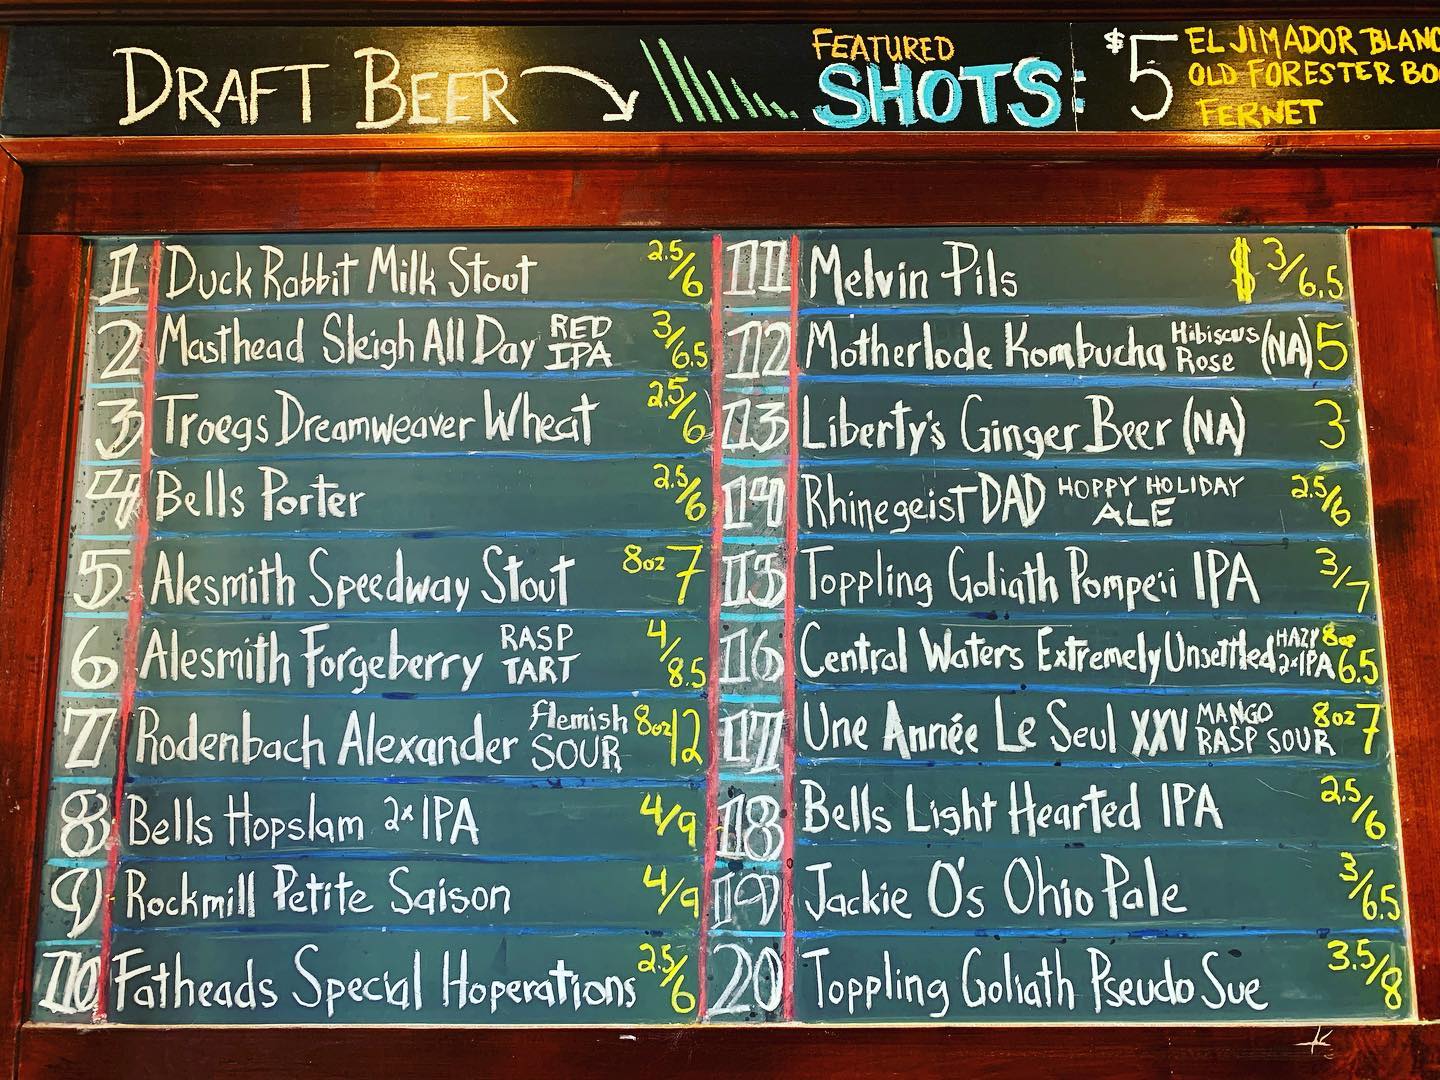 DRAFT BEER
FEATURED
SHOTS: $5
EL JIMADOR BLANC
OLD FORESTER BO
FERNET
1 Duck Rabbit Milk Stout 2.5/6
2 Masthead Sleigh All Day RED IPA 3/6.5
3 Troegs Dreamweaver Wheat 2.5/6
4 Bells Porter 2.5/6
5 Alesmith Speedway Stout 8oz 7
6 Alesmith Forgeberry RASP TART 4/8.5
7 Rodenbach Alexander Flemish SOUR 8oz 12
8 Bells Hopslam 2x IPA 4/9
9 Rockmill Petite Saison 4/9
10 Fatheads Special Hoperations 2.5/6
11 Melvin Pils $ 3/6.5
12 Motherlode Kombucha Hibiscus Rose (NA) 5
13 Liberty's Ginger Beer (NA) 3
14 Rhinegeist DAD HOPPY HOLIDAY ALE 2.5/6
15 Toppling Goliath Pompeii IPA 3/7
16 Central Waters Extremely Unsettled HAZY 2xIPA 8oz 6.5
17 Une Année Le Seul XXV MANGO RASP SOUR 8oz 7
18 Bells Light Hearted IPA 2.5/6
19 Jackie O's Ohio Pale 3/6.5
20 Toppling Goliath Pseudo Sue 3.5/8